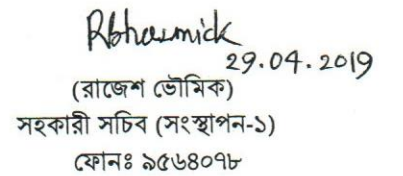 Rbhowmick
29.04.2019
(রাজেশ ভৌমিক)
সহকারী সচিব (সংস্থাপন-১)
ফোনঃ ৯৫৬৪০৭৮